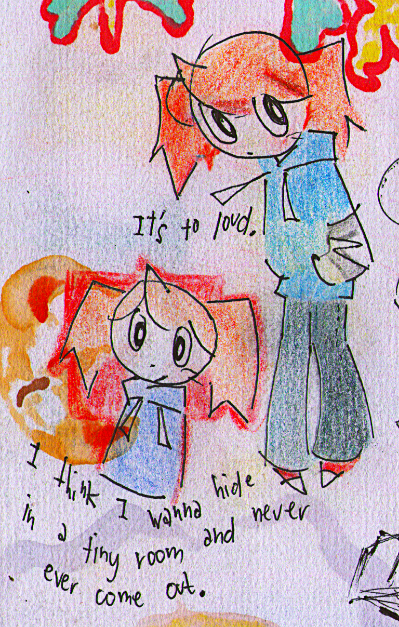 It's to loud.
I think I wanna hide
in a tiny room and never
ever come out.